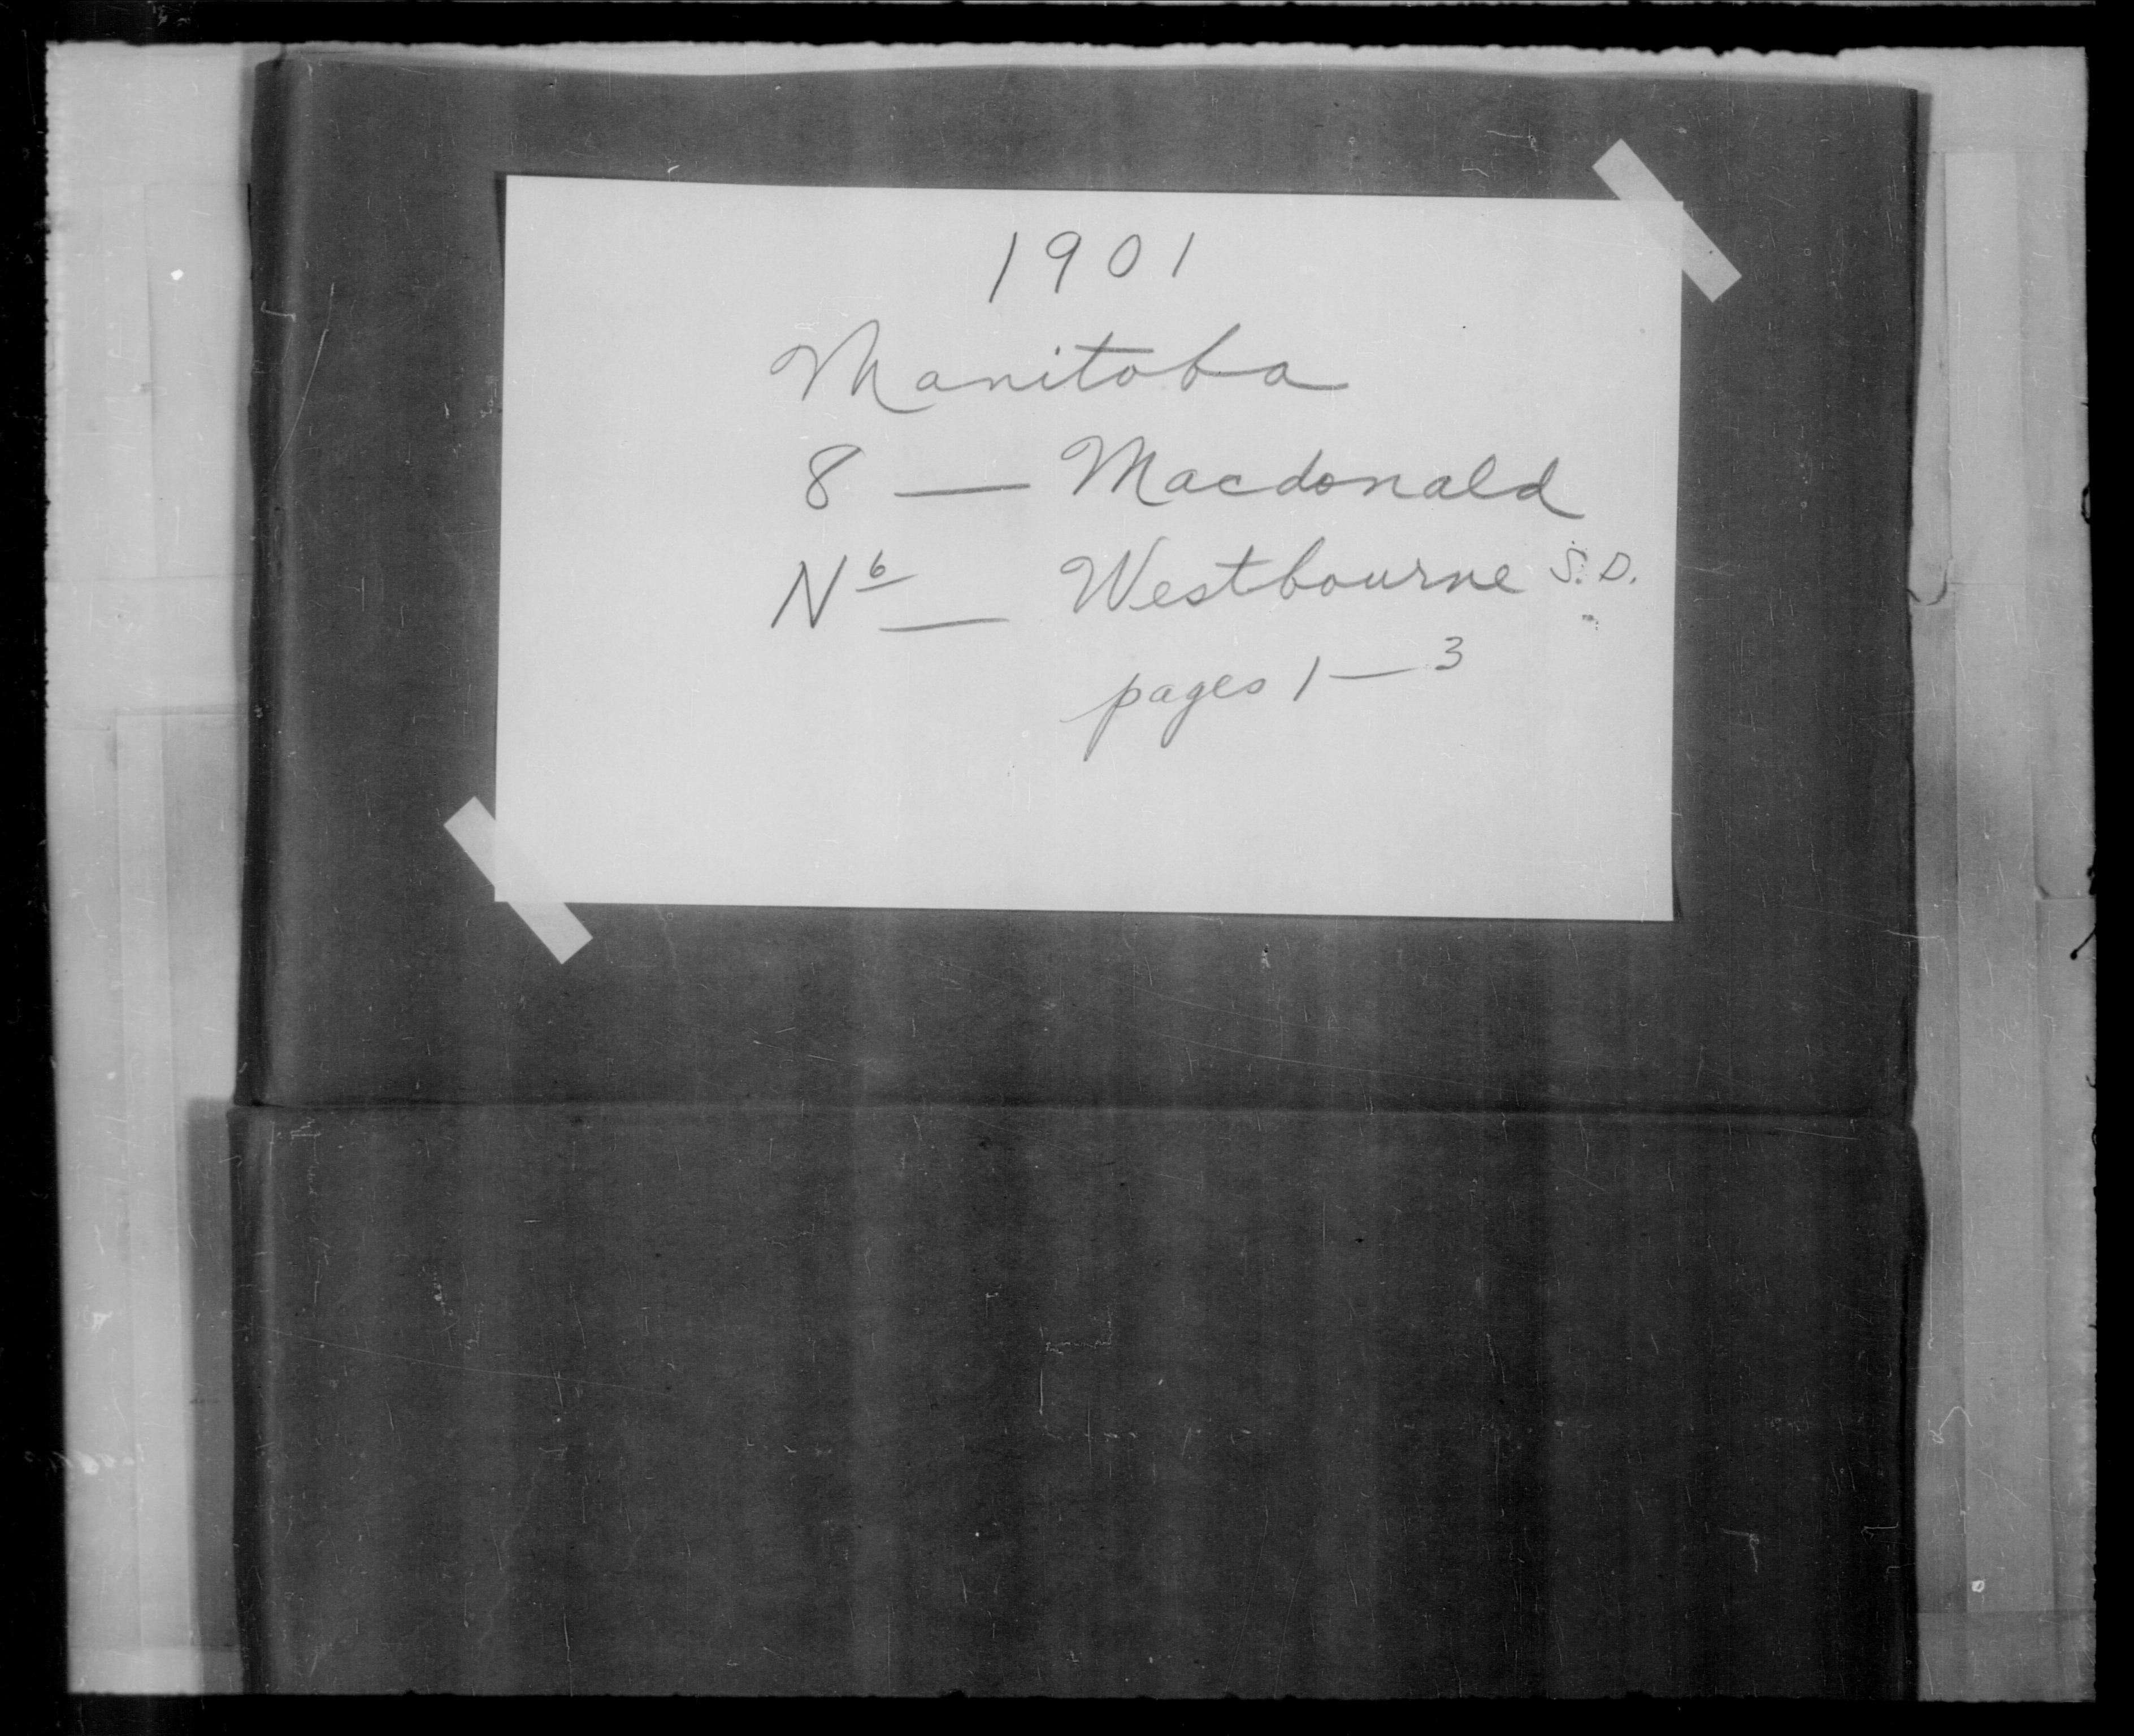 1901
Manitoba
8 — Macdonald
N6 — Westbourne S.D.
pages 1—3